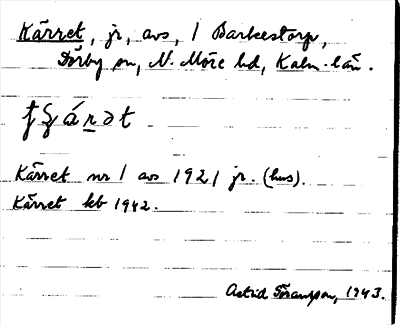 Kärret, jr, avs, 1 Barkestorp,
Dörby sn, N. Möre hd, Kalm. län.
Kärret nr 1 avs 1921 jr. (hus).
Kärret kb 1942.
Astrid 1943.